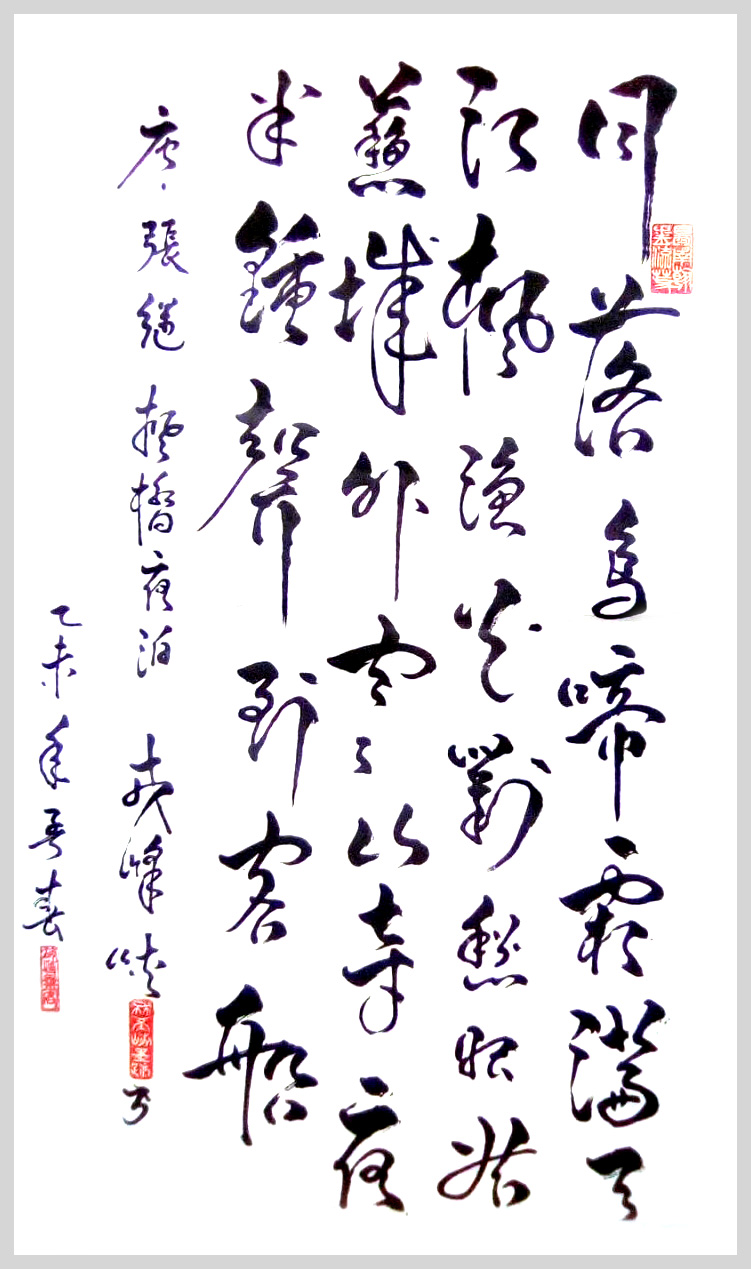 月落烏啼霜滿天
江楓漁火對愁眠姑
蘇城外寒山寺夜
半鐘聲到客船
唐·張繼 楓橋夜泊 峰
乙未年春